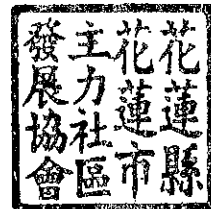 花蓮縣
花蓮市
主力社區
發展協會